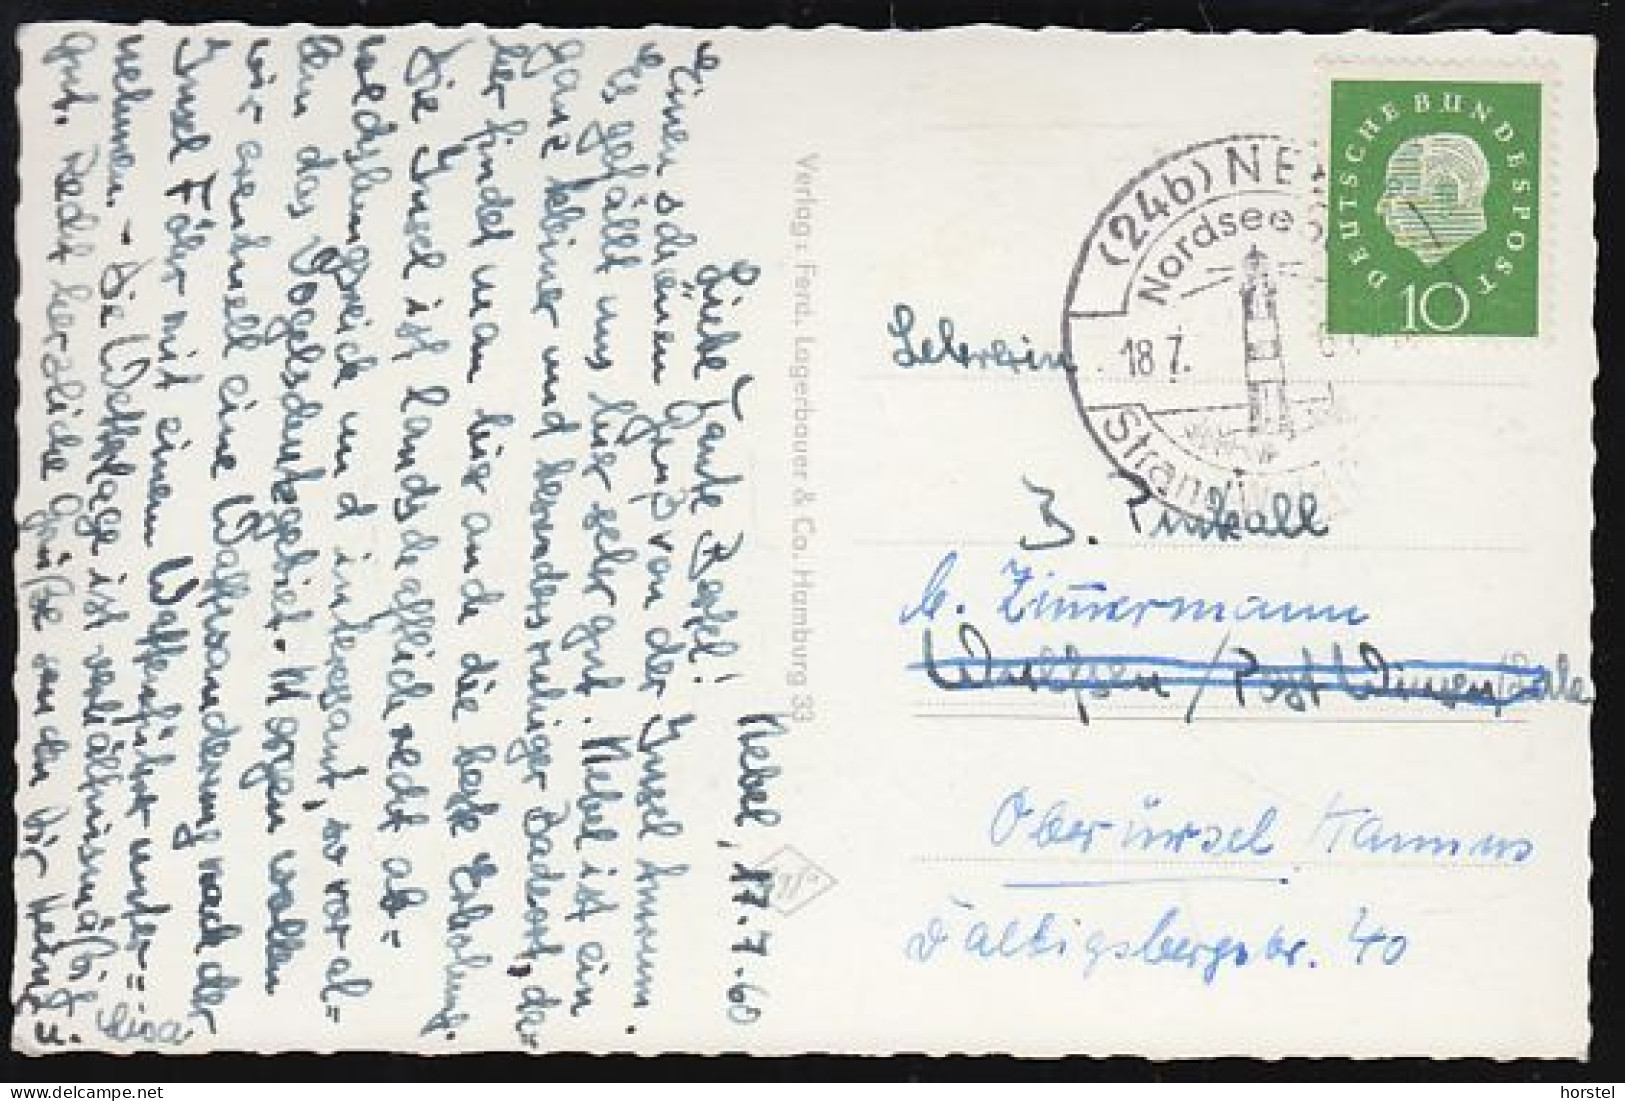 Nebel, 17.7.60
Liebe Tante Berkel!
Einen schönen Gruß von der Insel Amrum.
Es gefällt uns hier sehr gut. Nebel ist ein
ganz kleiner und besonders ruhiger Badeort, der
hier findet man hier ande die beste Erholung.
Die Insel ist landschaftlich recht ab-
wechslungsreich und interessant, vor al=
lem das Vogelschutzgebiet. Morgen wollen
wir eventuell eine Wattwanderung nach der
Insel Föhr mit einem Wattenführer unter=
nehmen. - Die Wetterlage ist verhältnismäßig
gut. Recht herzliche Grüße senden Dir Heinz u.
Lisa
Verlag: Ferd. Lagerbauer & Co. Hamburg 33
DEUTSCHE BUNDESPOST
10
(24b) NE
Nordsee
18.7.
Strand
Lehrerin
J. Rinkall
b. Zimmermann
Wulfsen / Post Winsen/Luhe
Oberursel Taunus
Altkönigsbergstr. 40
horstel